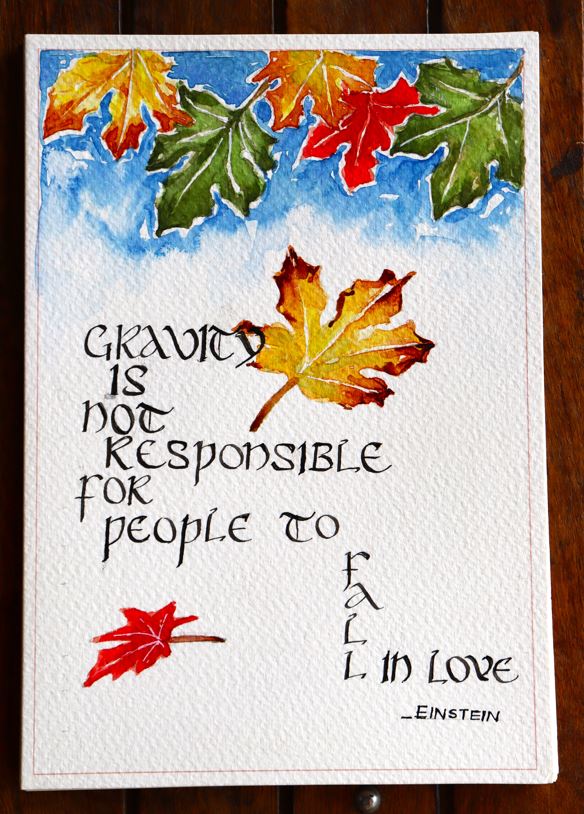 GRAVITY
IS
NOT
RESPONSIBLE
FOR
PEOPLE TO
FALL IN LOVE
_EINSTEIN